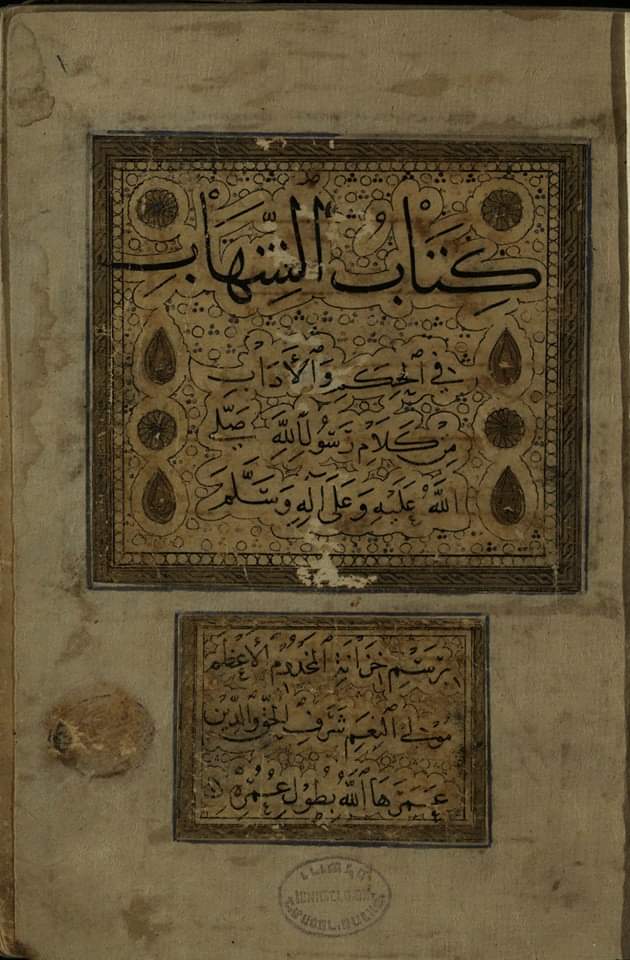 كِتَابُ الشِّهَابِ
فِي الْحِكَمِ وَالْأَدَابِ
مِنْ كَلَامِ رَسُولِ اللهِ صَلَّى
اللهُ عَلَيْهِ وَعَلَى آلِهِ وَسَلَّمَ
بِرَسْمِ خِزَانَةِ الْمَخْدُومِ الْأَعْظَمِ
مُولِي النِّعَمِ شَرَفِ الْحَقِّ وَالدِّينِ
عَمَرَهَا اللهُ بِطُولِ عُمُرِهِ